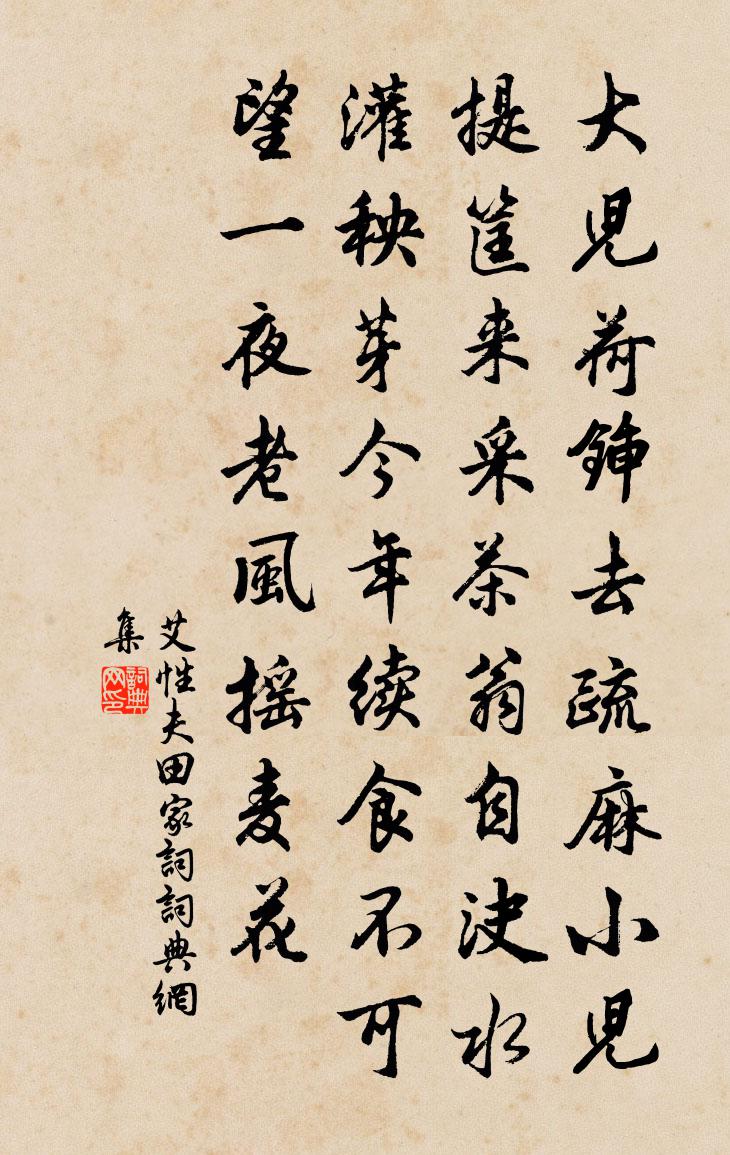 大兒荷鍤去疏麻小兒
提筐来采茶翁自決水
灌秧芽今年續食不可
望一夜老風摇麦花
艾性夫田家詞詞典網
集
詞典网印